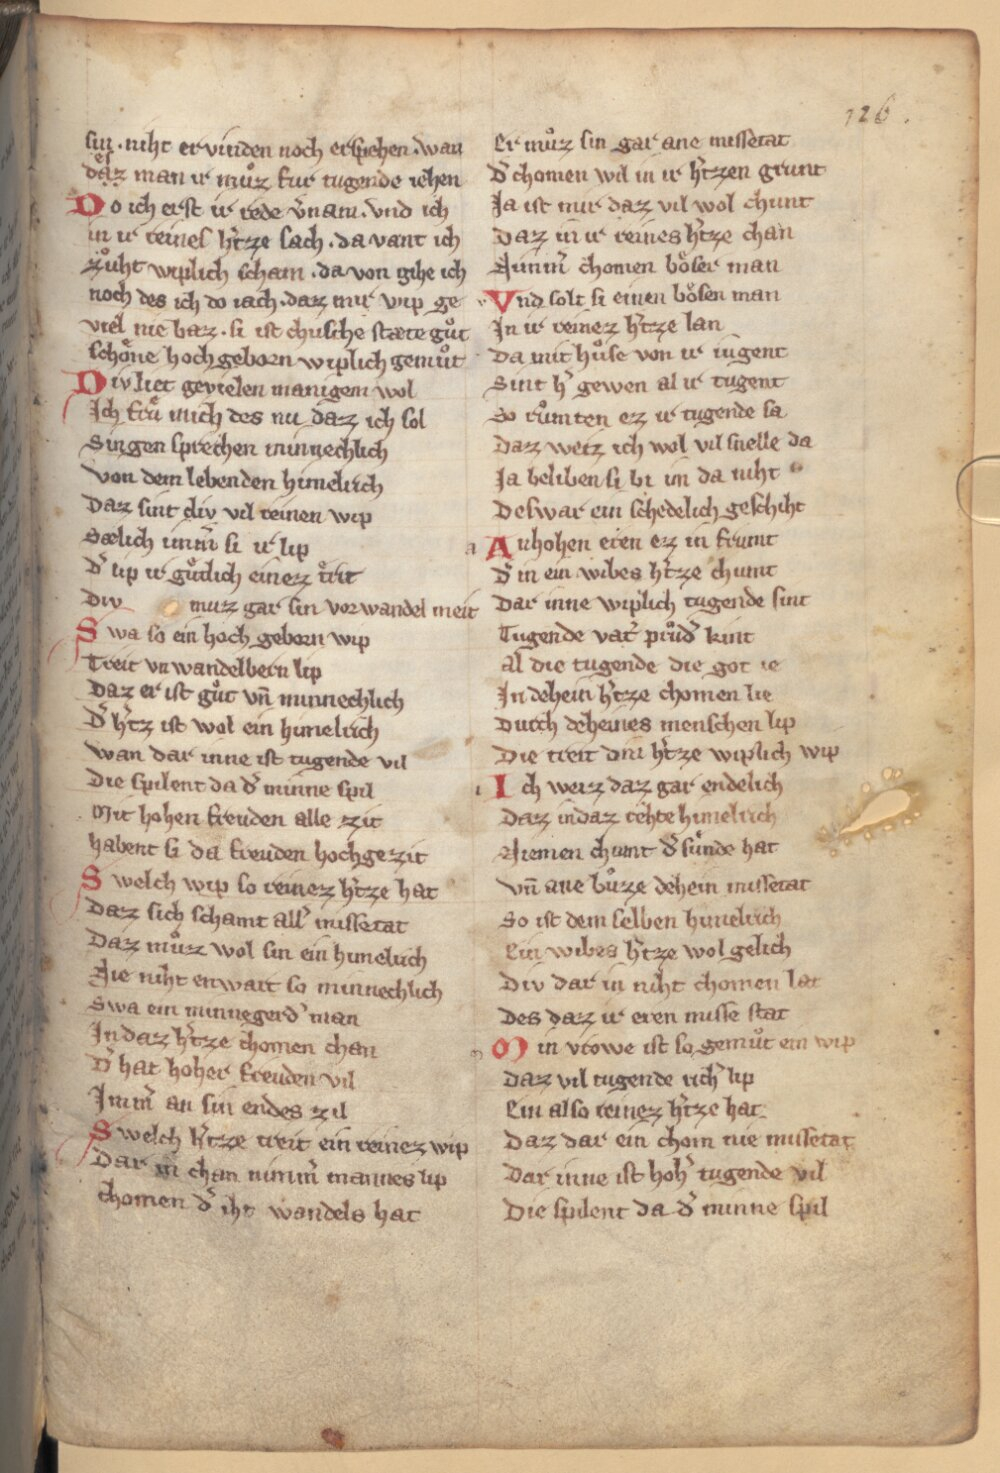 126.
sin · niht ervinden noch erspehen · wan
daz man ir muͦz fur tugende iehen
Do ich erst ir rede v̾nam · vnd ich
in ir reines h̾tze sach · da vant ich
zuͦht wiplich scham · da von gihe ich
noch des ich do iach · daz mir wip ge
viel nie baz · si ist chusche stæte guͦt
schoͤne hochgeborn wiplich gemuͦt
Div liet gevielen manigem wol
Ich frù mich des nu daz ich sol
Singen sprechen minnechlich
Von dem lebenden himelrich
Daz sint div vil reinen wip
Sælich imm̾ si ir lip
D̾ lip ir guͦtlich einez treit
Div muz gar sin vor wandel meit
Swa so ein hoch geborn wip
Treit vnwandelbern lip
Daz er ist guͦt vn̄ minnechlich
D̾ h̾tz ist wol ein himelrich
Wan dar inne ist tugende vil
Die spilent da d̾ minne spil
Mit hohen freuden alle zit
habent si da freuden hochgezit
Swelch wip so reinez h̾tze hat
Daz sich schamt all̾ missetat
Daz muͦz wol sin ein himelrich
Nie niht enwart so minnechlich
Swa ein minnegerd̾ man
In daz h̾tze chomen chan
D̾ hat hoher freuden vil
Imm̾ an sin endes zil
Swelch h̾tze treit ein reinez wip
Dar in chan nimm̾ mannes lip
chomen d̾ iht wandels hat
Er muͦz sin gar ane missetat
D̾ chomen wil in ir h̾tzen grunt
Ja ist mir daz vil wol chunt
Daz in ir reines h̾tze chan
Nimm̾ chomen boͤser man
Vnd solt si einen boͤsen man
In ir reinez h̾tze lan
Da mit huͦse von ir iugent
Sint h̾ gewen al ir tugent
So ruͦmten ez ir tugende sa
Daz weiz ich wol vil snelle da
Ja beliben si bi im da niht
Deswar ein schedelich geschiht
An hohen eren ez in frumt
D̾ in ein wibes h̾tze chumt
Dar inne wiplich tugende sint
Tugende vat̾ pruͦd̾ kint
Al die tugende die got ie
In dehein h̾tze chomen lie
Durch deheines menschen lip
Die treit din h̾tze wiplich wip
Ich weiz daz gar endelich
Daz in daz rehte himelrich
Niemen chumt d̾ suͤnde hat
Vn̄ ane buͦze dehein missetat
So ist dem selben himelrich
Ein wibes h̾tze wol gelich
Div dar in niht chomen lat
Des daz ir eren misse stat
Min vrowe ist so gemuͦt ein wip
Daz vil tugende rich̾ lip
Ein also reinez h̾tze hat
Daz dar ein chom nie missetat
Dar inne ist hoh̾ tugende vil
Die spilent da d̾ minne spil